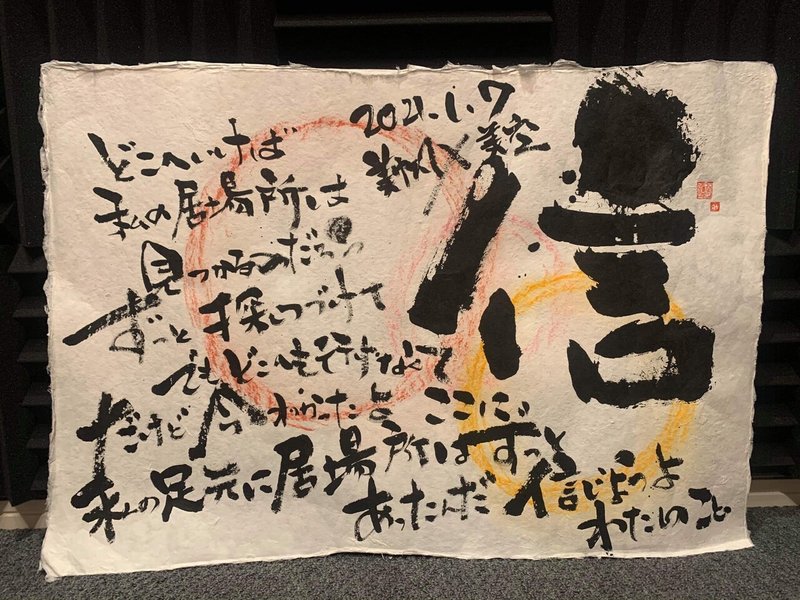 信
2021.1.7
どこへいけば
私の居場所は
見つかるのだろう
ずっと探しつづけて
でもどこへも行けなくて
だけど今わかったよ ここに
私の足元に居場所はずっと
あったんだ 信じようよ
わたしのこと